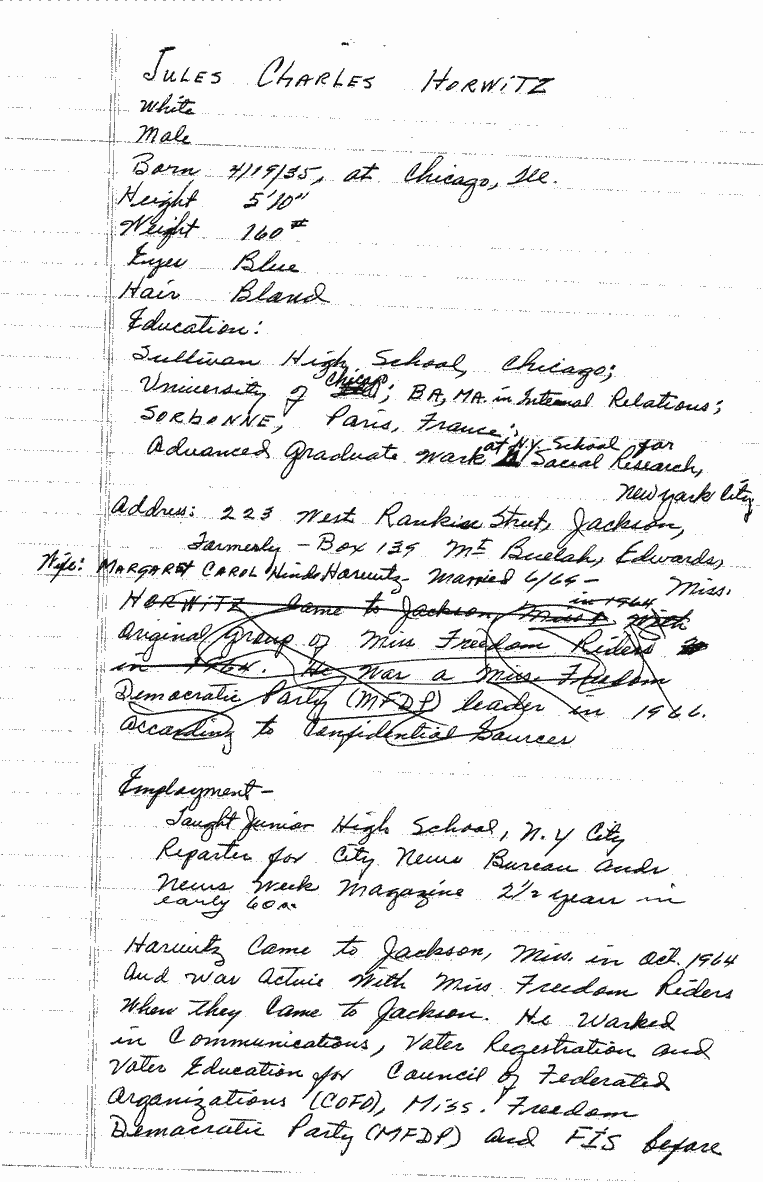 JULES CHARLES HORWITZ
White
Male
Born 4/19/35, at Chicago, Ill.
Height 5'10"
Weight 160#
Eyes Blue
Hair Blond
Education:
Sullivan High School, Chicago;
University of Chicago; BA, MA. in Internal Relations;
SORBONNE, Paris, France;
Advanced Graduate Work at N.Y. School for
Social Research,
New York City
Address: 223 West Rankin Street, Jackson,
Formerly - Box 139 Mt Buelah, Edwards,
Miss.
Wife: MARGARET CAROL Hinds Horwitz - Married 6/65 -
HORWITZ Came to Jackson, Miss. in 1964 With
Original Group of Miss Freedom Riders
in 1964. He was a Miss. Freedom
Democratic Party (MFDP) leader in 1966.
According to Confidential Sources
Employment -
Taught Junior High School, N.Y City
Reporter for City News Bureau and
News Week Magazine 2½ years in
early 60s.
Horwitz Came to Jackson, Miss. in Oct. 1964
And was active With Miss Freedom Riders
When they Came to Jackson. He Worked
in Communications, Voter Registration and
Voter Education for Council of Federated
Organizations (COFO), Miss. Freedom
Democratic Party (MFDP) and FIS before